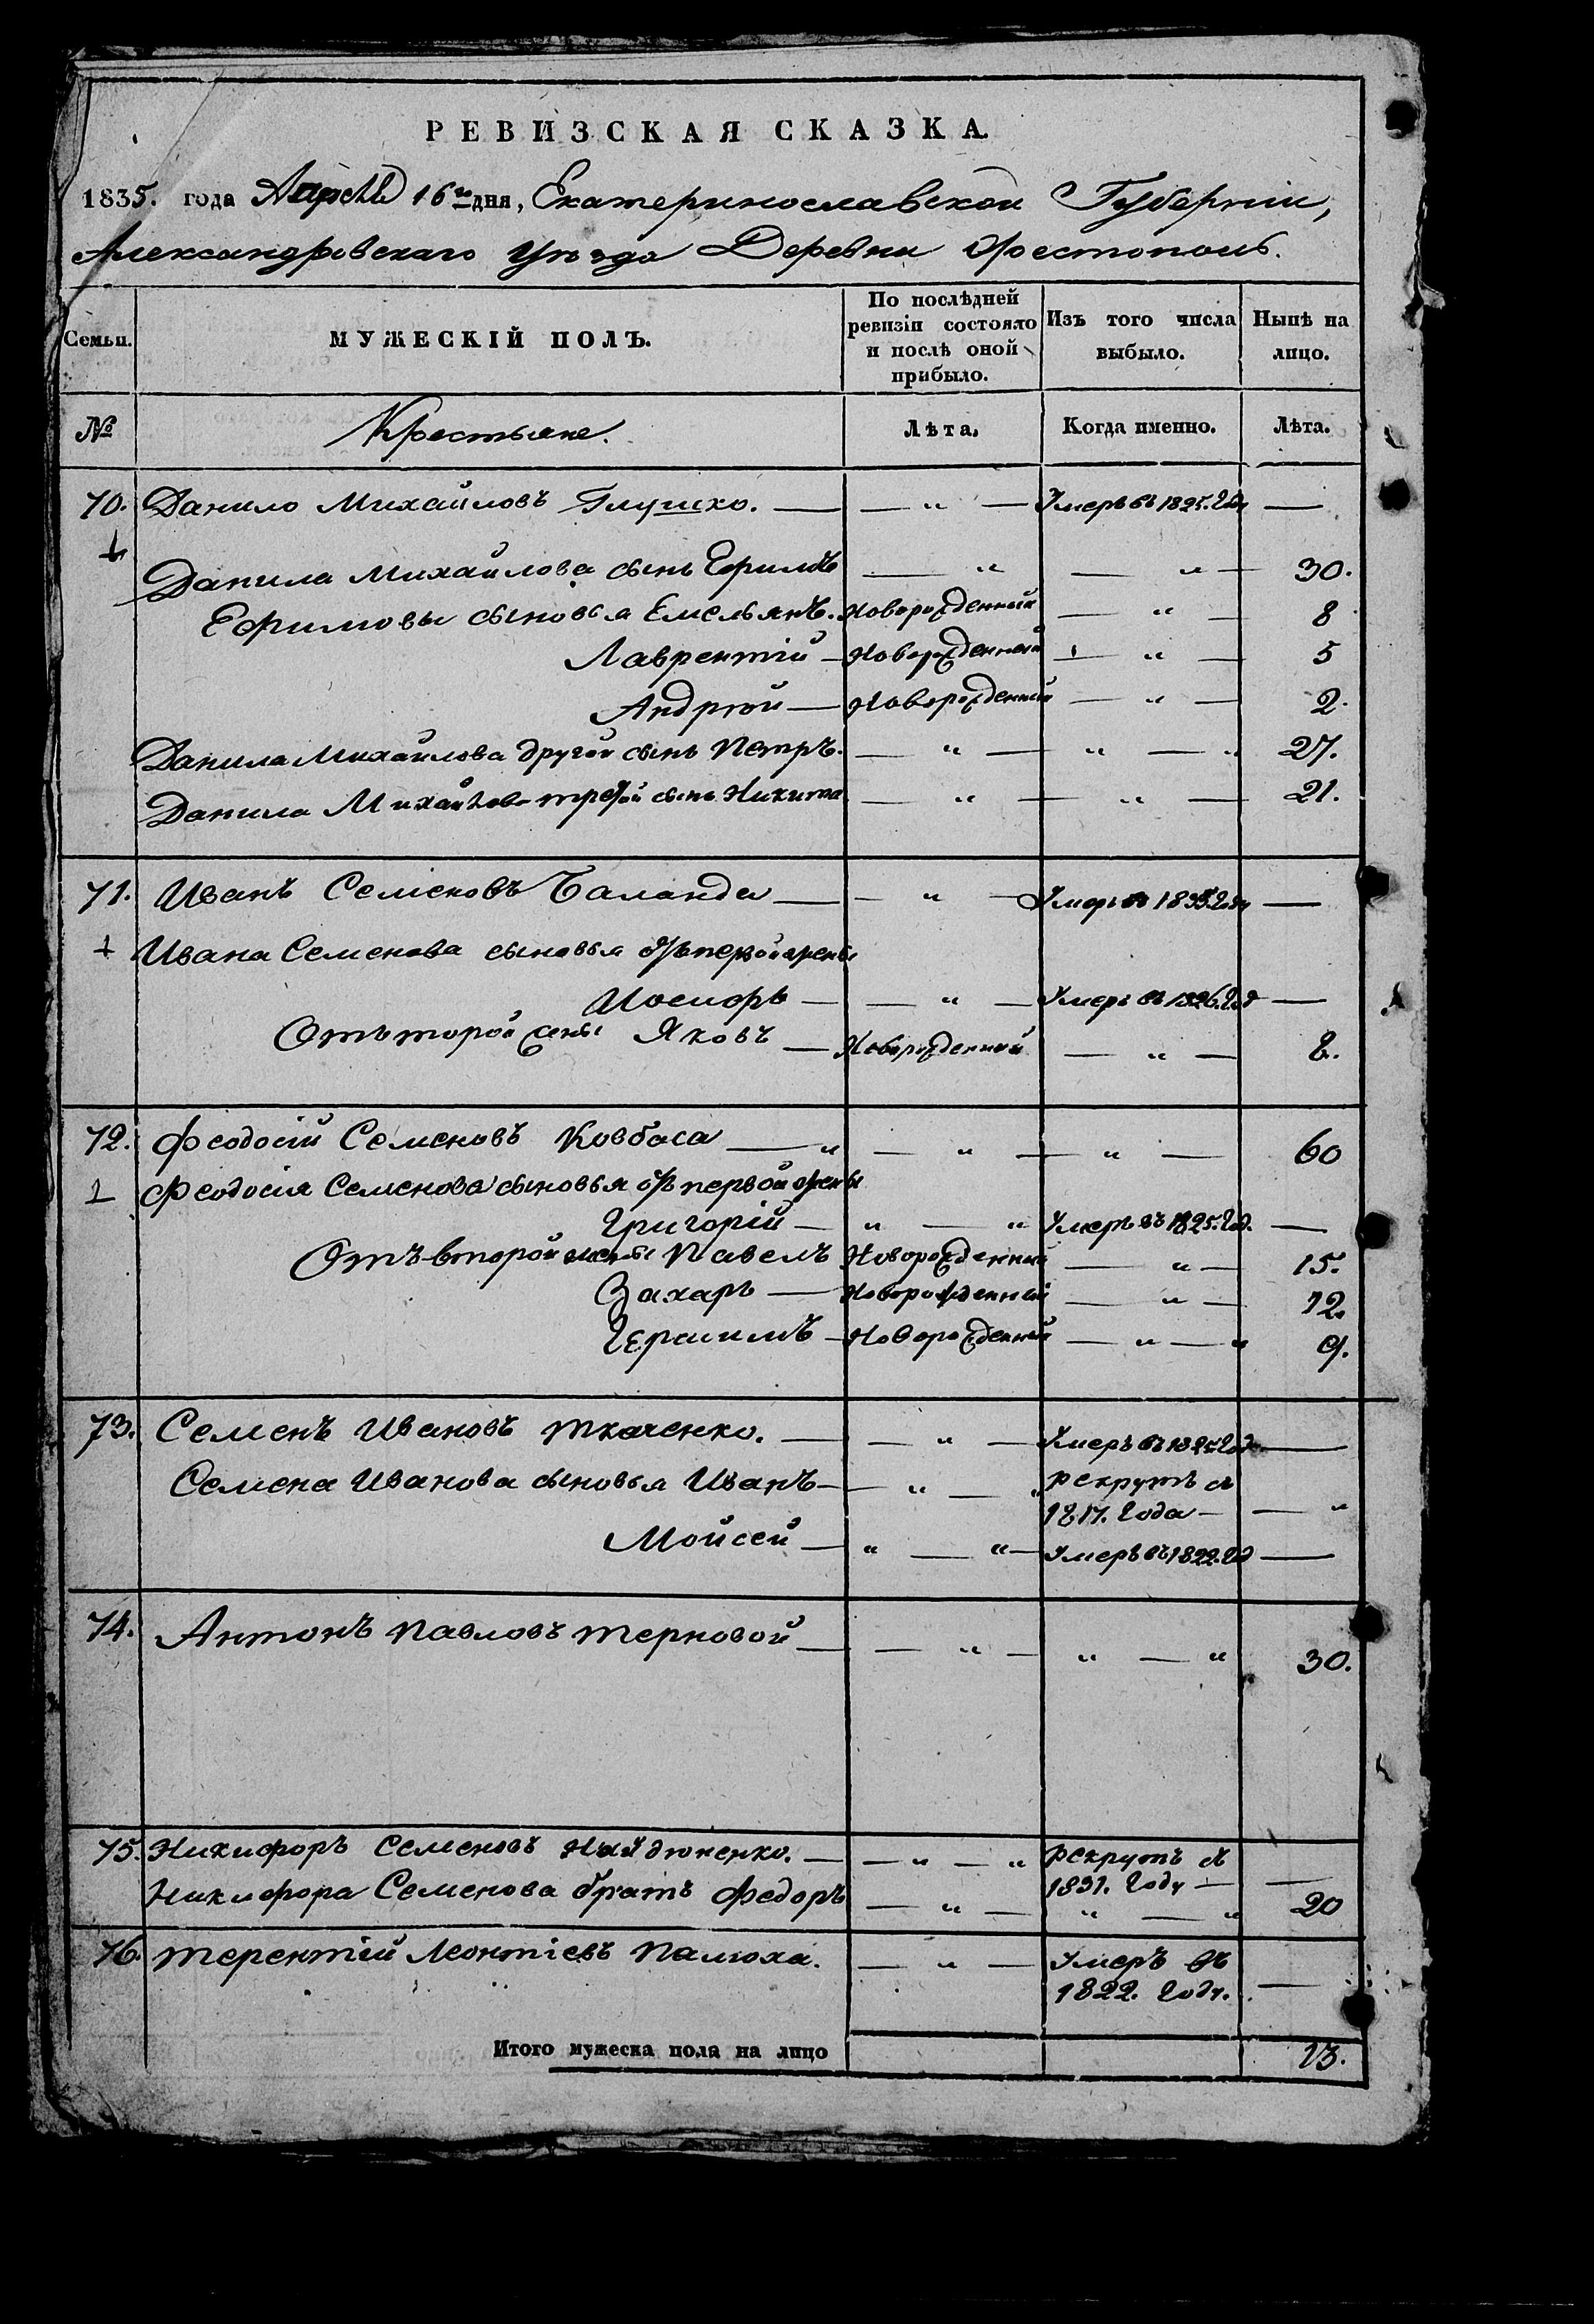 РЕВИЗСКАЯ СКАЗКА.
1835. года Апреля 16го дня, Екатеринославской Губерніи,
Александровскаго Уезда Деревни
Семьи.
МУЖЕСКІЙ ПОЛЪ.
По послѣдней ревизіи состояло и послѣ оной прибыло.
Изъ того числа выбыло.
Нынѣ на лицо.
№ Крестьяне. Лѣта. Когда именно. Лѣта.
70. Данило Михайловъ Глушко. — — „ — Умеръ въ 1825. Году —
Данила Михайлова сынъ Ефимъ — „ — „ — 30.
Ефимовы сыновья Емельянъ. Новорожденный — „ — 8
Лаврентій — Новорожденный — „ — 5
Андрей — Новорожденный — „ — 2.
Данила Михайлова другой сынъ Петръ. — „ — „ — „ 27.
Данила Михайлова третій сынъ Никита — „ — „ — 21.
71. Иванъ Семеновъ Баланда — — „ — Умеръ въ Году —
Ивана Семенова сыновья отъ первой жены
Иосифъ — — „ — Умеръ въ 1826. Год —
Отъ второй жены Яковъ — Новорожденный — „ — 2.
72. Феодосій Семеновъ Ковбаса — „ — „ — „ — 60
1 Феодосія Семенова сыновья отъ первой жены
Григорій — „ — „ Умеръ въ 1825. Год. —
Отъ второй жены Павелъ Новорожденный — „ — 15.
Захаръ — Новорожденный — „ — 12.
Герасимъ — Новорожденный — „ — „ 9.
73. Семенъ Ивановъ Ткаченко. — — „ — Умеръ въ 1825. Год —
Семена Иванова сыновья Иванъ — „ — „ Рекрутъ съ
1817. Года — — „
Мойсей — „ — „ — Умеръ въ 1822. Год —
74. Антонъ Павловъ Терновой — — „ — „ — „ 30.
75. Никифоръ Семеновъ Найдюненко. — — „ — „ Рекрутъ съ
1831. Году — —
Никифора Семенова братъ Федоръ — „ — „ — „ 20
76. Терентій Леонтіевъ Палюха. — „ — Умеръ въ
1822. Году. —
Итого мужеска пола на лицо 13.